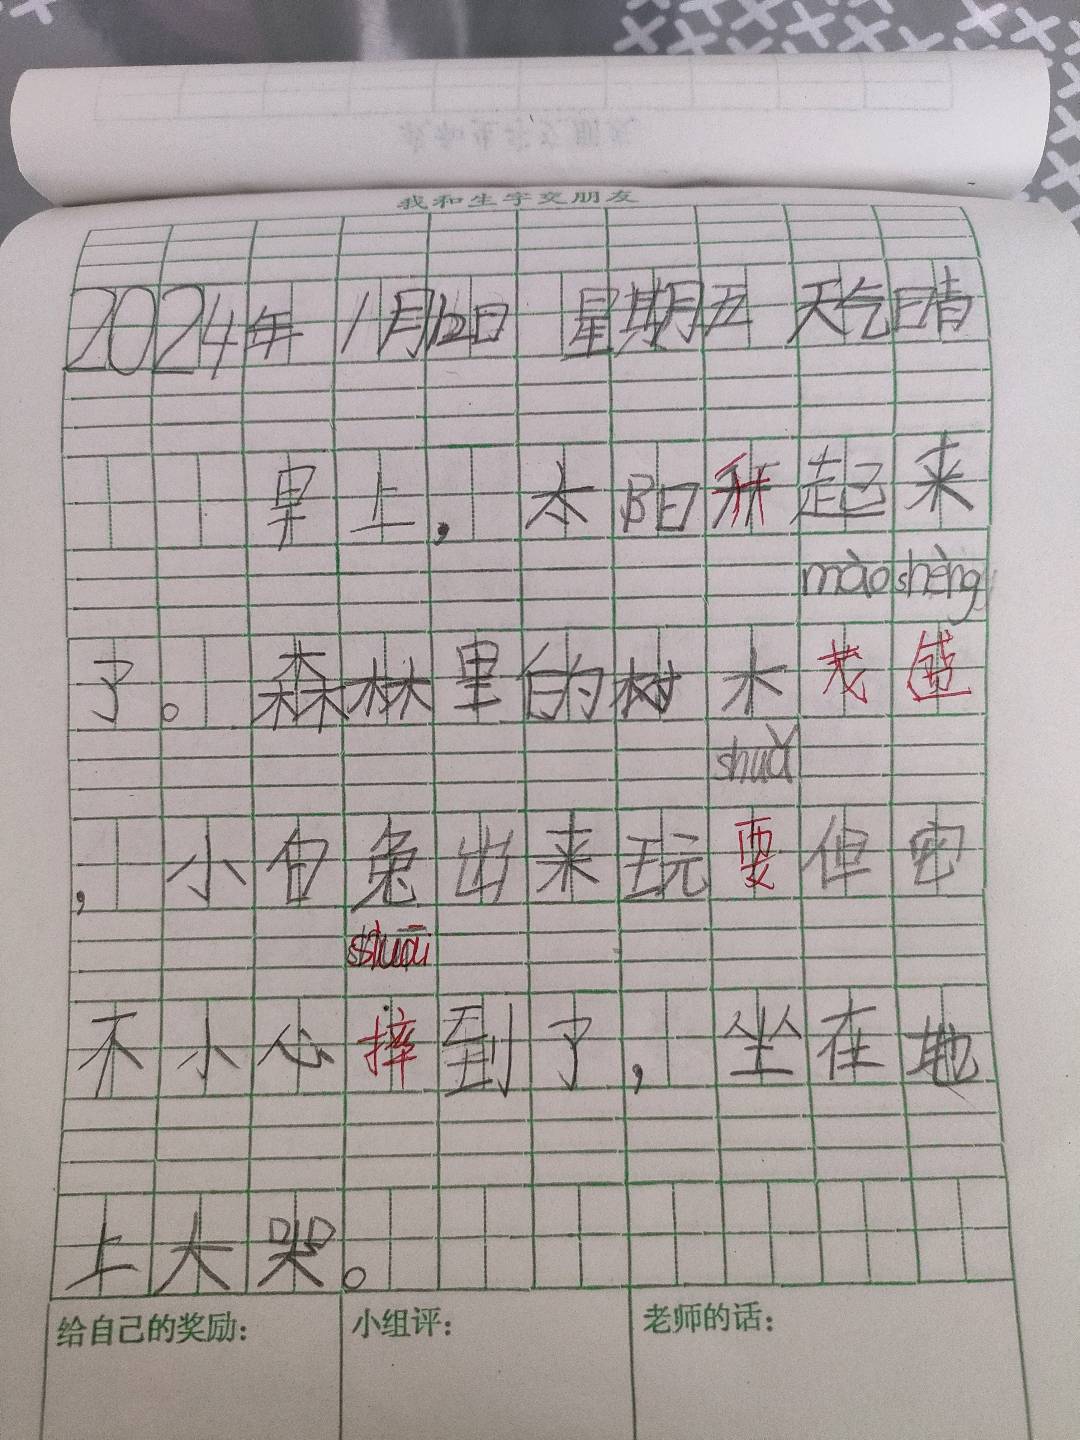 我和生字交朋友
2024年 1月12日 星期五 天气晴
早上,太阳升起来
mào shèng
了。森林里的树木茂盛
shuǎ
,小白兔出来玩耍但它
shuāi
不小心摔到了,坐在地
上大哭。
给自己的奖励: 小组评: 老师的话: